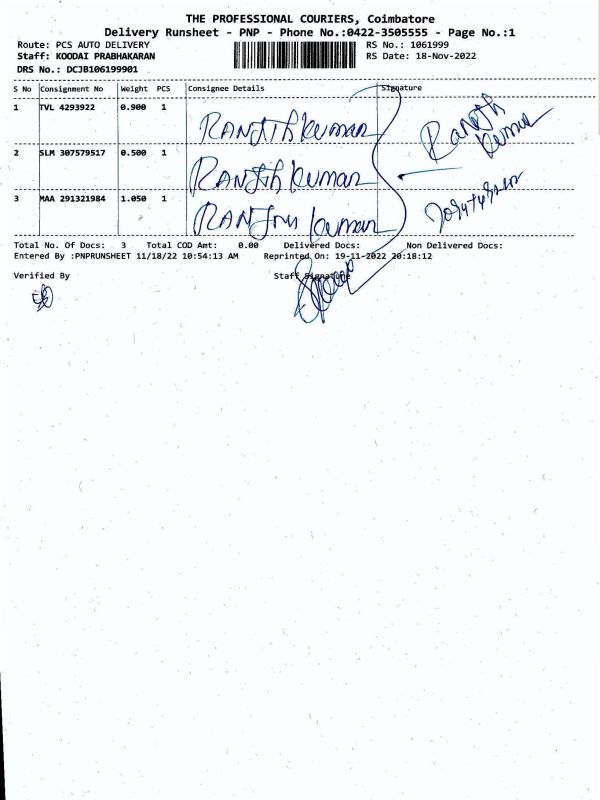 THE PROFESSIONAL COURIERS, Coimbatore
Delivery Runsheet - PNP - Phone No.:0422-3505555 - Page No.:1
Route: PCS AUTO DELIVERY RS No.: 1061999
Staff: KOODAI PRABHAKARAN RS Date: 18-Nov-2022
DRS No.: DCJB106199901
S No Consignment No Weight PCS Consignee Details Signature
1 TVL 4293922 0.900 1
RANJITH kumar
Ranjith
kumar
2 SLM 307579517 0.500 1
RANJith kumar
3 MAA 291321984 1.050 1
kumar
Total No. Of Docs: 3 Total COD Amt: 0.00 Delivered Docs: Non Delivered Docs:
Entered By :PNPRUNSHEET 11/18/22 10:54:13 AM Reprinted On: 19-11-2022 20:18:12
Verified By Staff Signature